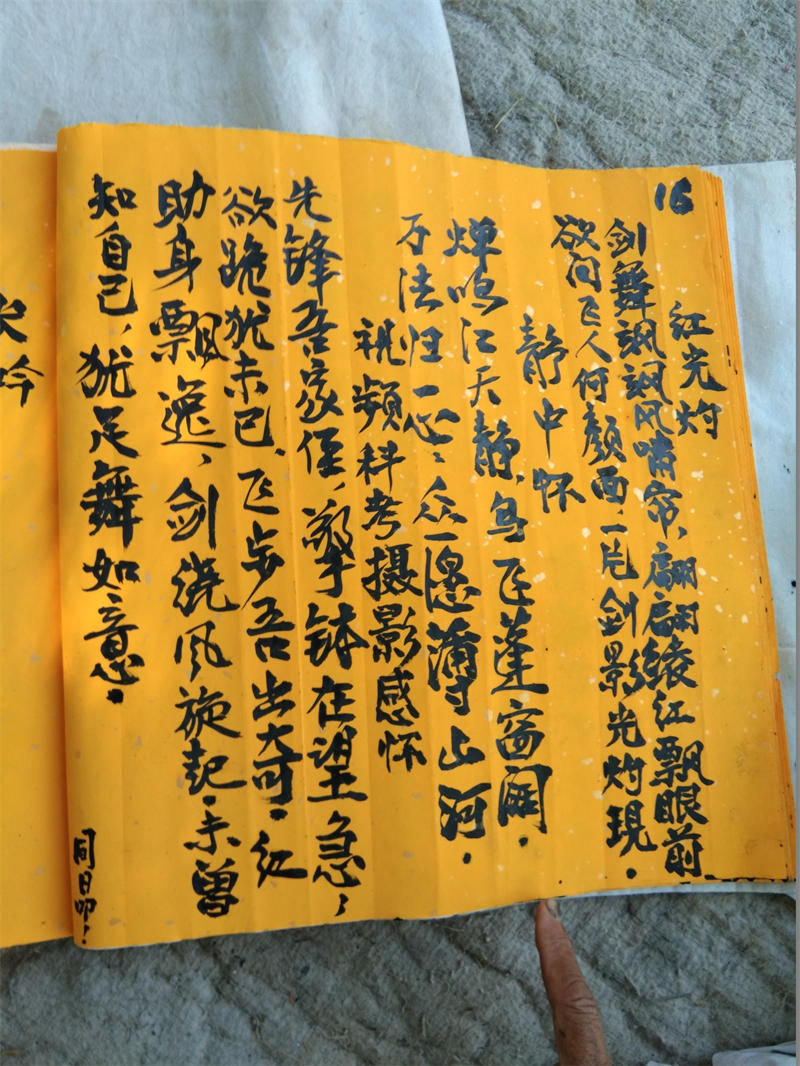 16
红光灼
剑舞飒飒风啸帘,翩翩绫红飘眼前
欲问飞人何颜面,一片剑影光灼现.
静中怀
蝉鸣江天静,鸟飞蓬窗阔.
万法归一心,众愿薄山河.
视频科考摄影感怀
先锋吾家侄,擎钵在望急,
欲跪犹未已、飞步吾出奇.红
助身飘逸、剑绕风旋起.未曾
知自己,犹足舞如意.
同日吟!
吟